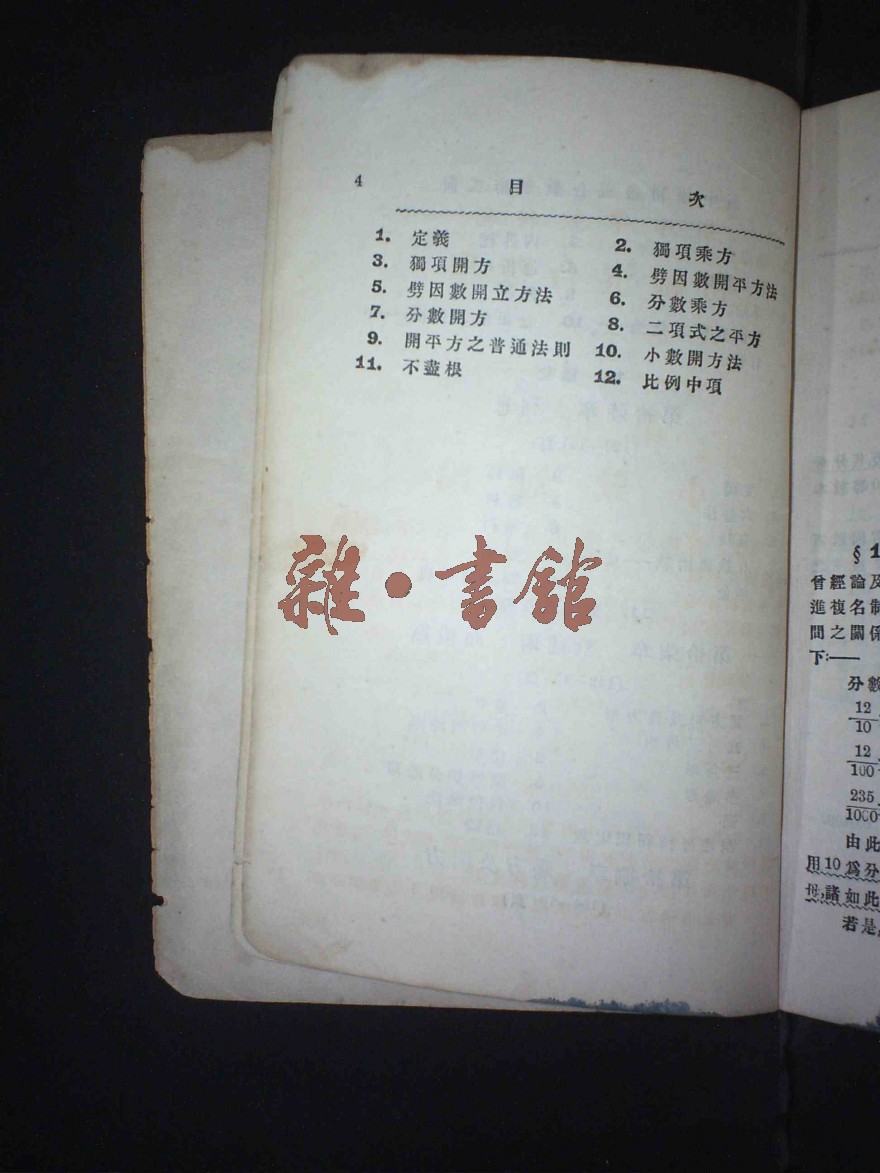 4 目 次
1. 定義 2. 獨項乘方
3. 獨項開方 4. 劈因數開平方法
5. 劈因數開立方法 6. 分數乘方
7. 分數開方 8. 二項式之平方
9. 開平方之普通法則 10. 小數開方法
11. 不盡根 12. 比例中項
雜·書館
§1
曾經論及
進複名制
間之關係
下:——
分數
12
10
12
100
235
1000
由此
用10爲分
母,諸如此
若是